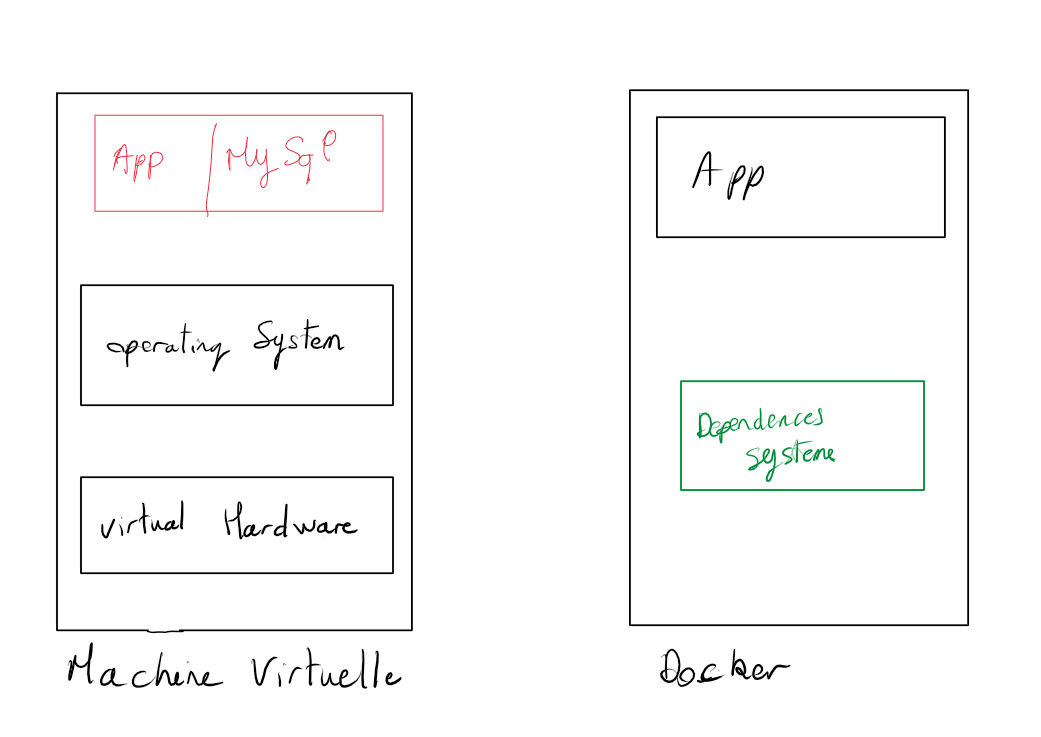 App | MySql
operating System
virtual Hardware
Machine Virtuelle
App
Dependences
systeme
Docker